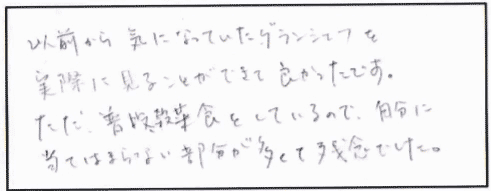 以前から気になっていたグランシェフを
実際に見ることができて良かったです。
ただ、普段菜食をしているので、自分に
当てはまらない部分が多くて残念でした。